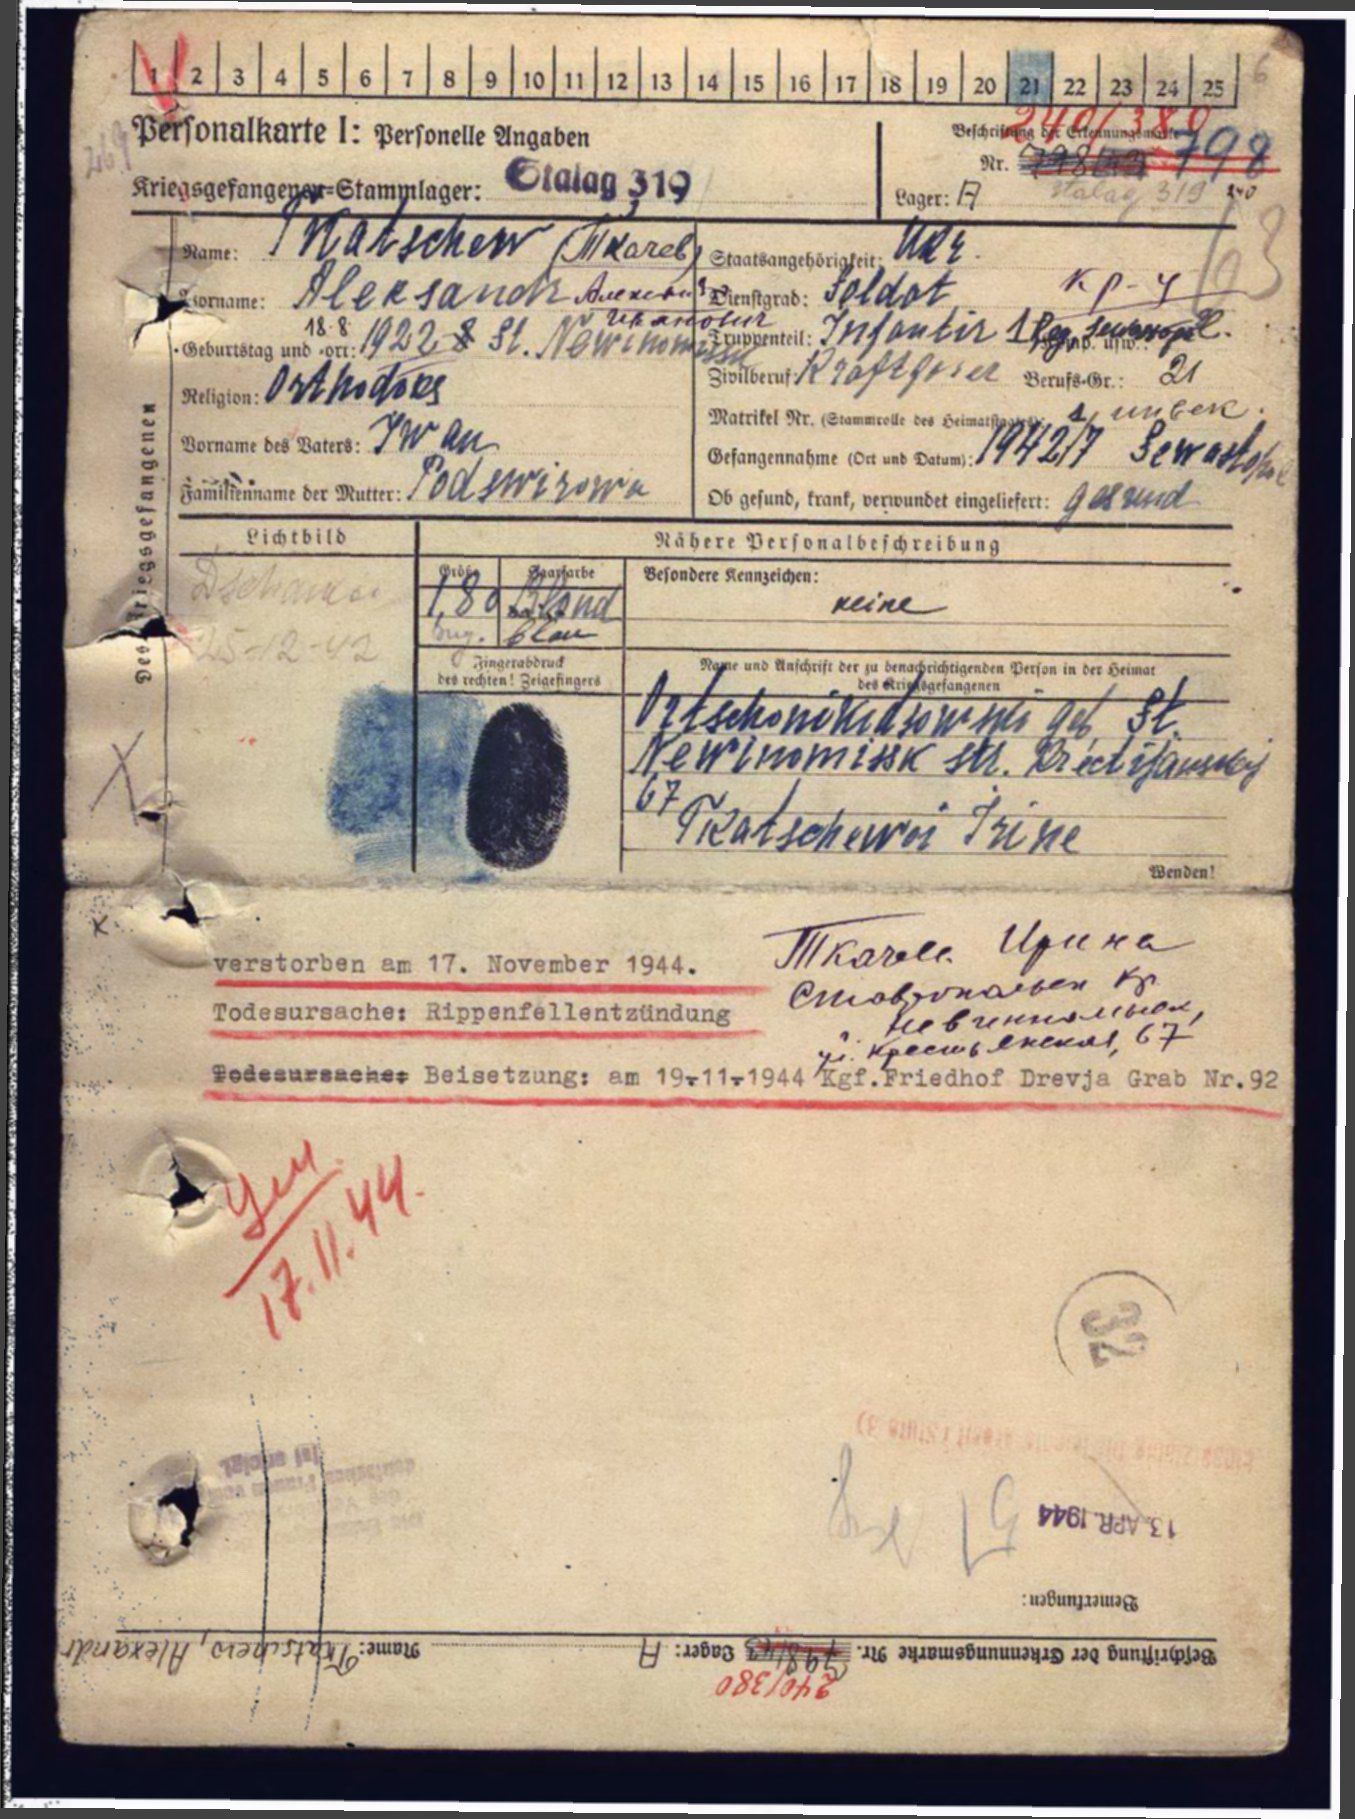 1 2 3 4 5 6 7 8 9 10 11 12 13 14 15 16 17 18 19 20 21 22 23 24 25
6
Personalkarte I: Personelle Angaben
Kriegsgefangenen-Stammlager: Stalag 319
240/380
Beschriftung der Erkennungsmarke
Nr. 798
Stalag 319
Lager: A
Des Kriegsgefangenen
Name: Tkatschew (Ткачев)
Vorname: Aleksandr
Иванович
Geburtstag und -ort: 18.8 1922 St. Newinomissk
Religion: Orthodoks
Vorname des Vaters: Iwan
Familienname der Mutter: Podswirowa
Staatsangehörigkeit: Ukr.
Dienstgrad: Soldat
кр-ц
Truppenteil: Infantir 1 Reg. Komp. usw.:
Zivilberuf: Berufs-Gr.: 21
Matrikel Nr. (Stammrolle des Heimatstaates): unbek.
Gefangennahme (Ort und Datum): 1942/7 Sewastopol
Ob gesund, krank, verwundet eingeliefert: gesund
Lichtbild
Dschankoi
25-12-42
Nähere Personalbeschreibung
Größe Haarfarbe Besondere Kennzeichen:
1,80 Blond keine
Aug. blau
Fingerabdruck
des rechten! Zeigefingers
Name und Anschrift der zu benachrichtigenden Person in der Heimat
des Kriegsgefangenen
Ortschonikidsowski geb. St.
Newinomissk str.
67
Tkatschewoi Irine
Wenden!
verstorben am 17. November 1944.
Todesursache: Rippenfellentzündung
Todesursache: Beisetzung: am 19.11.1944 Kgf.Friedhof Drevja Grab Nr.92
Ткачева Ирина
Ставропольск кр.
Невинномысск,
ул. Крестьянская, 67
Ум.
17.11.44.
32
13. APR. 1944
Bemerkungen:
Beschriftung der Erkennungsmarke Nr. 798/43 Lager: A Name: Tkatschew, Alexandr
240/380